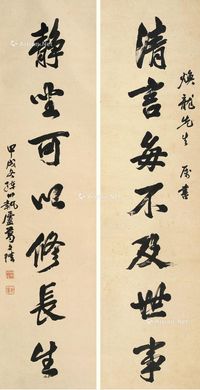 清言每不及世事
煥龍先生 屬書
靜坐可以修長生
甲戌冬